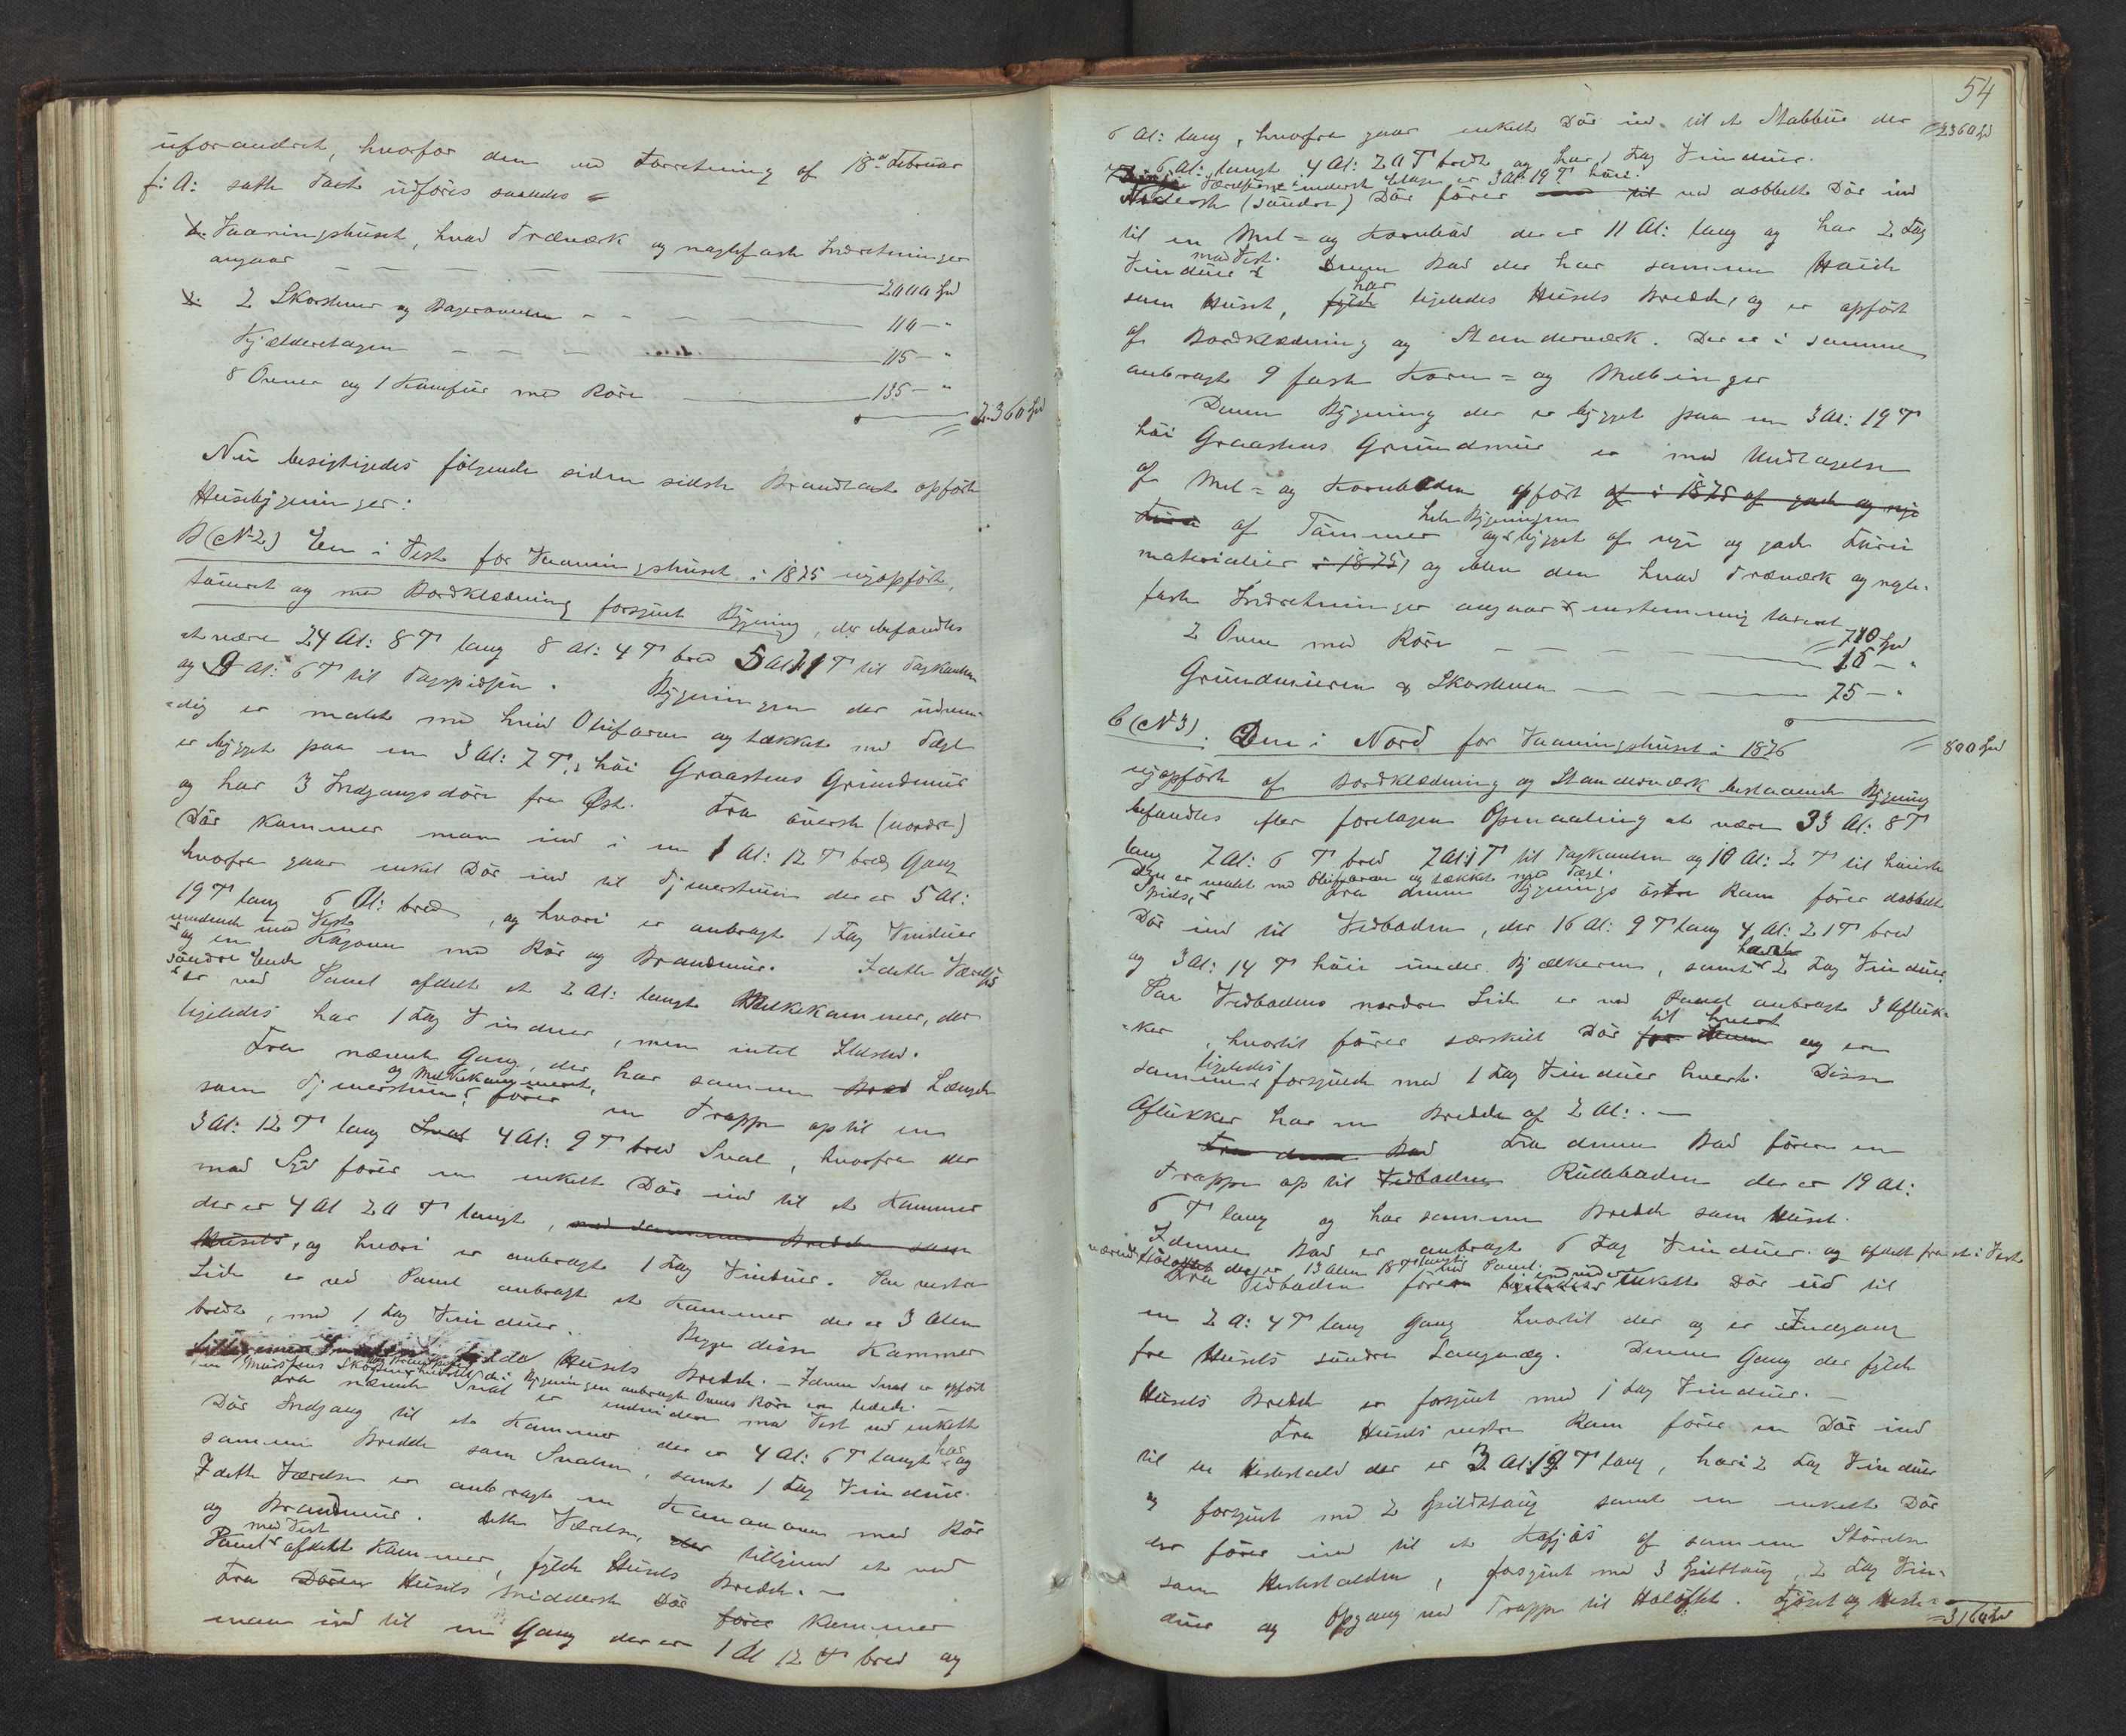 uforandret, hvorfor den ved Forretning af 18de Februar
f: A: satte Taxt udföres saaledes
1. Vaaningshuset, hvad Træværk og naglefaste Indretninger
angaar — — — — 2000 Spd
2. 2 Skorstene og Bagerovnen — — — 110 — "
Kjælderetagen — — — 115 — "
8 Ovner og 1 Komfur med Rör — 135 — "
2.360 Spd
Nu besigtigedes fölgende siden sidste Brandtaxt opförte
Husebygninger:
B (No 2) En i Vest for Vaaningshuset i 1875 nyopfört,
tömret og med Bordklædning forsynet Bygning, der befandtes
at være 24 Al: 8 T lang 8 Al: 4 T bred 5 Al 11 T til Tagkanten
og 9 Al: 6 T til Tagspidsen. Bygningen der udven-
dig er malet med hvid Oliefarve og tækket med Tagl
er bygget paa en 3 Al: 7 T höi Graastens Grundmur
og har 3 Indgangsdöre fra Öst. Fra överste (nordre)
Dör kommer man ind i en 1 Al: 12 T bred Gang
hvorfra gaar enkel Dör ind til Tjenerstuen der er 5 Al:
19 T lang 6 Al: bred, og hvori er anbragt 1 Fag Vinduer
vendende mod Vest
og en Kogovn med Rör og Brandmur. I dette Værelses
söndre Ende
er ved Panel afdelt et 2 Al: langt Melkekammer, der
ligeledes har 1 Fag Vinduer, men intet Ildsted.
Fra nævnte Gang, der har samme Bred Længde
og Melkekammeret,
som Tjenerstuen förer en Trappe op til en
3 Al: 12 T lang Sval 4 Al: 9 T bred Sval, hvorfra der
mod Syd förer en enkelt Dör ind til et Kammer
der er 4 Al 20 T langt, med samme Bredde som
Husets, og hvori er anbragt 1 Fag Vinduer. Paa vestre
Side er ved Panel anbragt et Kammer der er 3 Alen
bredt, med 1 Fag Vinduer. Begge disse Kammer
fylde Husets Bredde. — I denne Sval er opfört
en Murstens Skorsten hvortil de i Bygningen anbragte Ovnes Röre ere ledede. —
Fra nævnte Sval er endvidere mod Vest ved enkelt
Dör Indgang til et Kammer der er 4 Al: 6 T langt og har
samme Bredde som Svalen, samt 1 Fag Vinduer.
I dette Værelse er anbragt en Kanonovn med Rör
og Brandmur. Dette Værelse, der tilligemed et ved
mod Vest
Panel afdelt Kammer, fylder Husets Bredde. —
Fra Dören Husets midterste Dör förer kommer
man ind til en Gang der er 1 Al 12 T bred og
54
6 Al: lang, hvorfra gaar enkelt Dör ind til et Stabbur der
2360 Spd
6 Al: langt 4 Al: 20 T bredt og har 1 Fag Vinduer.
Værelserne i underste Etage er 3 Al: 19 T höie.
Nederste (söndre) Dör förer til ved dobbelt Dör ind
til en Mel- og Kornbod der er 11 Al: lang og har 2 Fag
mod Vest.
Vinduer Denne Bod der har samme Höide
har
som Huset, fylder ligeledes Husets Bredde, og er opfört
af Bordklædning og Standerværk. Der er i samme
anbragt 9 faste Korn- og Melbinger
Denne Bygning der er bygget paa en 3 Al: 19 T
höi Graastens Grundmur er med Undtagelse
af Mel- og Kornboden opfört af i 1875 af gode og nye
hele Bygningen
Furu af Tömmer og bygget af nye og gode Furu
materialier i 1875, og blev den hvad Træværk og nagle-
faste Indretninger angaar enstemmig taxeret
710 Spd
2 Ovne med Röre — — — 15 — "
Grundmuren og Skorstenen — — — 75 — "
800 Spd
C (No 3). Den i Nord for Vaaningshuset i 1876
nyopförte af Bordklædning og Standerværk bestaaende Bygning
befandtes efter foretagen Opmaaling at være 33 Al: 8 T
lang 7 Al: 6 T bred 7 Al: 1 T til Tagkanten og 10 Al: 2 T til höieste
Den er malet med Oliefarve og tækket med Tagl.
Spids, Fra denne Bygnings östre Ram förer dobbelt
Dör ind til Vedboden, der 16 Al: 9 T lang 4 Al: 21 T bred
havde
og 3 Al: 14 T höi under Bjelkerne, samt 2 Fag Vinduer.
Paa Vedbodens nordre Side er ved Panel anbragt 3 Afluk-
til hvert
ker, hvortil förer særskilt Dör for denne og er
ligeledes
samme forsynede med 1 Fag Vinduer hvert. Disse
Aflukker har en Bredde af 2 Al: . —
Fra denne Bod Fra denne Bod förer en
Trappe op til Vedboden Rulleboden der er 19 Al:
6 T lang og har samme Bredde som Huset.
I denne Bod er anbragt 6 Fag Vinduer og afdelt fra et i Vest
værende Höloft der er 13 Alen 18 T langt ved Panel.
Fra Vedboden förer ligeledes endvidere enkelt Dör ud til
en 2 A: 4 T lang Gang hvortil der og er Indgang
fra Husets söndre Langvæg. Denne Gang der fylder
Husets Bredde er forsynet med 1 Fag Vinduer. —
Fra Husets vestre Ram förer en Dör ind
til en Hestestald der er 3 Al: 19 T lang, hari 2 Fag Vinduer
og forsynet med 2 Spildtaug samt en enkelt Dör
der förer ind til et Kofjös af samme Störrelse
som Hestestalden, forsynet med 3 Spildtaug, 2 Fag Vin-
duer og Opgang ved Trappe til Höloftet. Fjöset og Heste-
3160 Spd